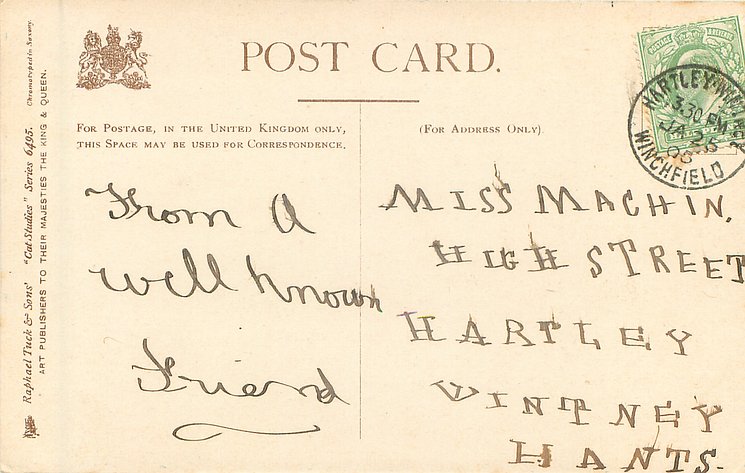 POST CARD.
FOR POSTAGE, IN THE UNITED KINGDOM ONLY,
THIS SPACE MAY BE USED FOR CORRESPONDENCE.
(FOR ADDRESS ONLY)
From A
well known
Friend
MISS MACHIN,
HIGH STREET
HARTLEY
VINTNEY
HANTS.
HARTLEY
3.30 PM
JA
WINCHFIELD
Raphael Tuck & Sons' "Cat Studies" Series 6495. Chromotyped in Saxony.
ART PUBLISHERS TO THEIR MAJESTIES THE KING & QUEEN.